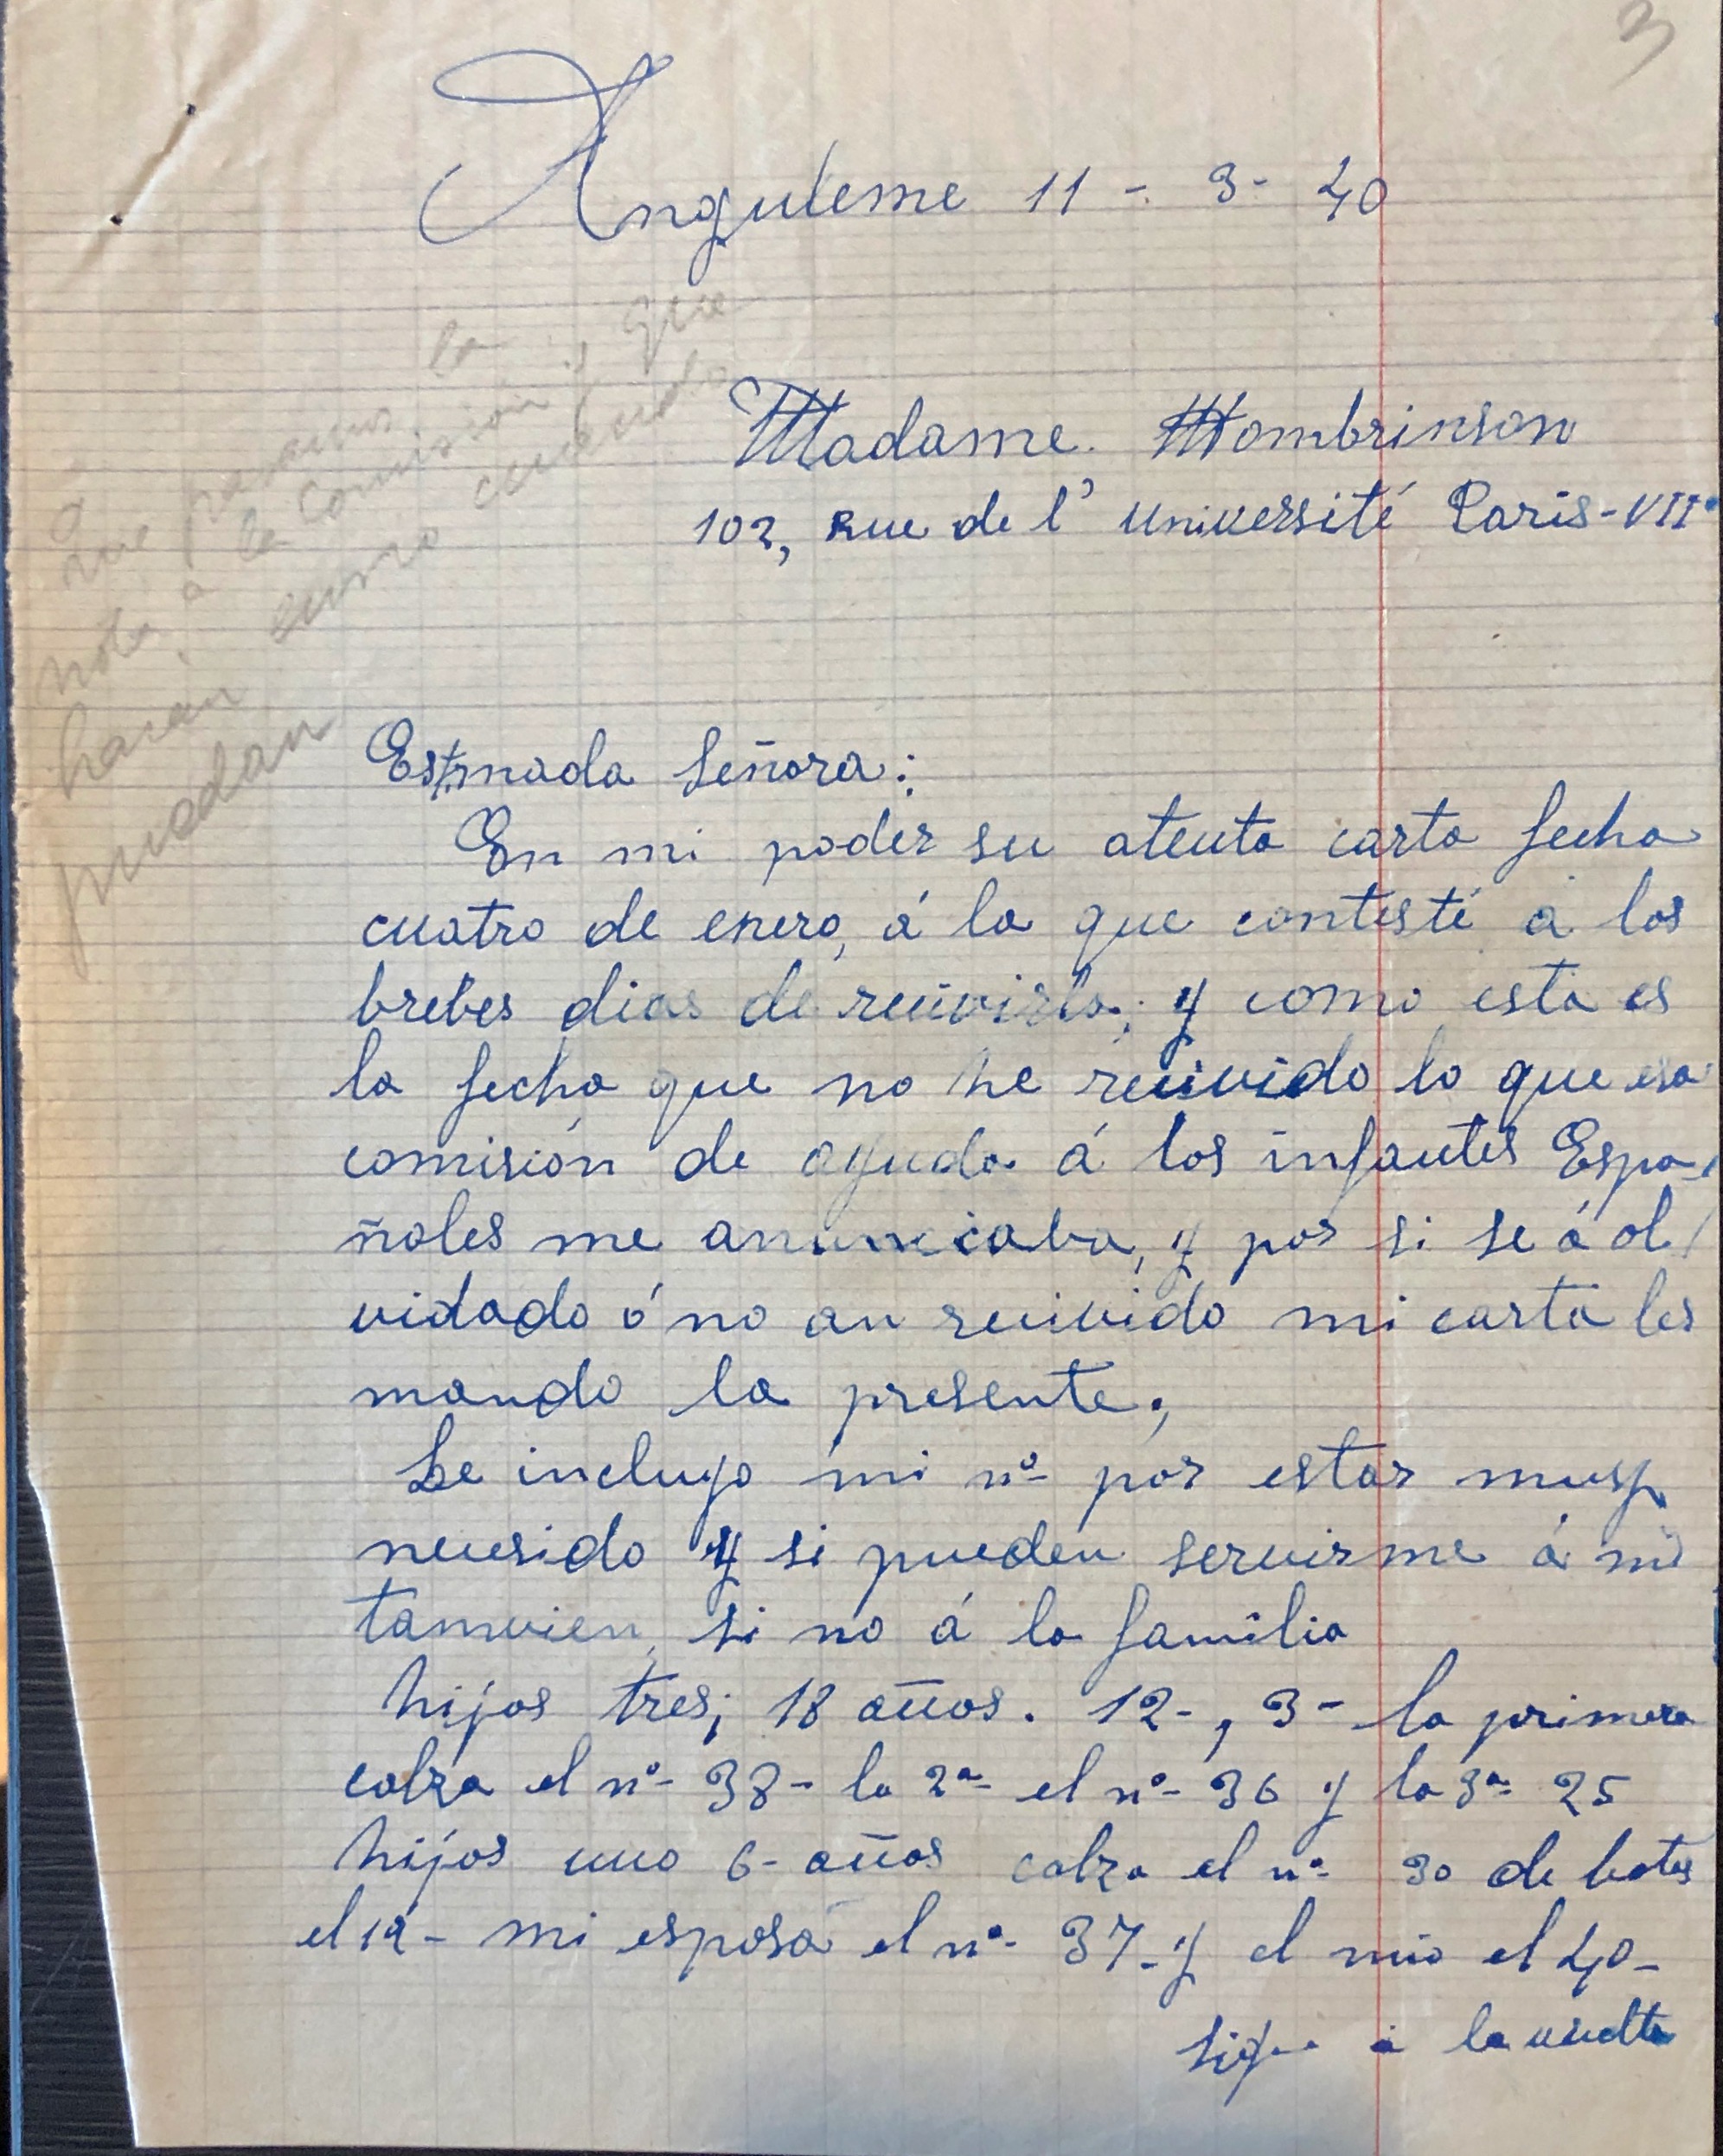 3
Anguleme 11 - 3 - 40
Madame. Hombrinson
102, Rue de l' Université Paris-VIIº
Que pasamos la
nota a la comisión y que
harán como cuando
puedan
Estimada Señora:
En mi poder su atenta carta fecha
cuatro de enero, á la que contesté á los
brebes dias de recivirla; y como esta es
la fecha que no he recivido lo que esa
comisión de ayuda á los infantes Espa-
ñoles me anunciaba, y por si se á ol
vidado ó no an recivido mi carta les
mando la presente.,
Le incluyo mi nº por estar muy
necesido y si pueden servirme á mi
tamvien, si no á la familia
hijos tres; 18 años. 12-, 3- la primera
calza el nº- 38- la 2ª- el nº- 36 y la 3ª- 25
hijos uno 6- años calza el nº- 30 de botas
el 19- mi esposa el nº- 37- y el mio el 40-
Sigue á la vuelta